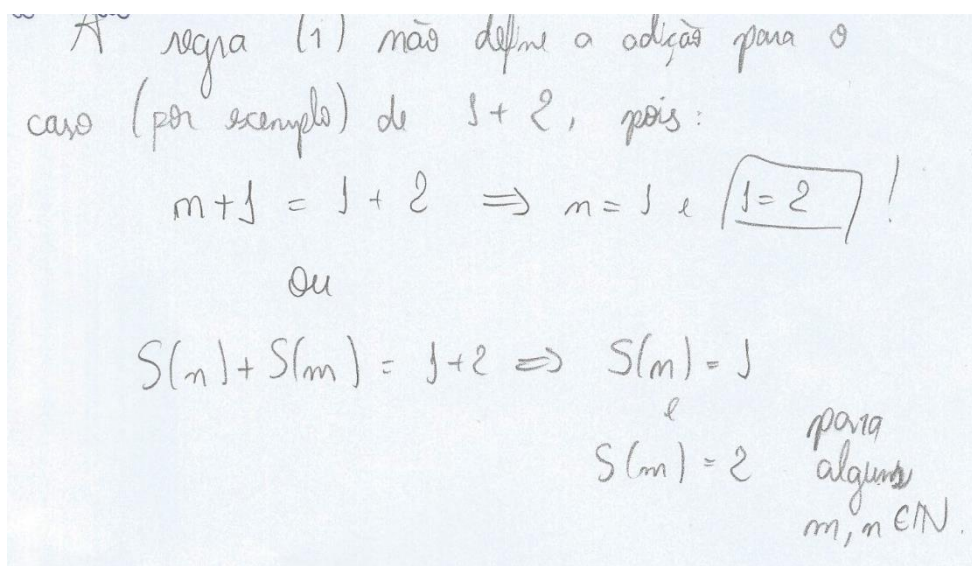 A regra (1) não define a adição para o
caso (por exemplo) de 1 + 2, pois:
m+1 = 1 + 2 ⇒ m = 1 e 1 = 2 !
ou
S(n) + S(m) = 1+2 ⇒ S(n) = 1
e
S(m) = 2 para
alguns
m, n ∈ ℕ.